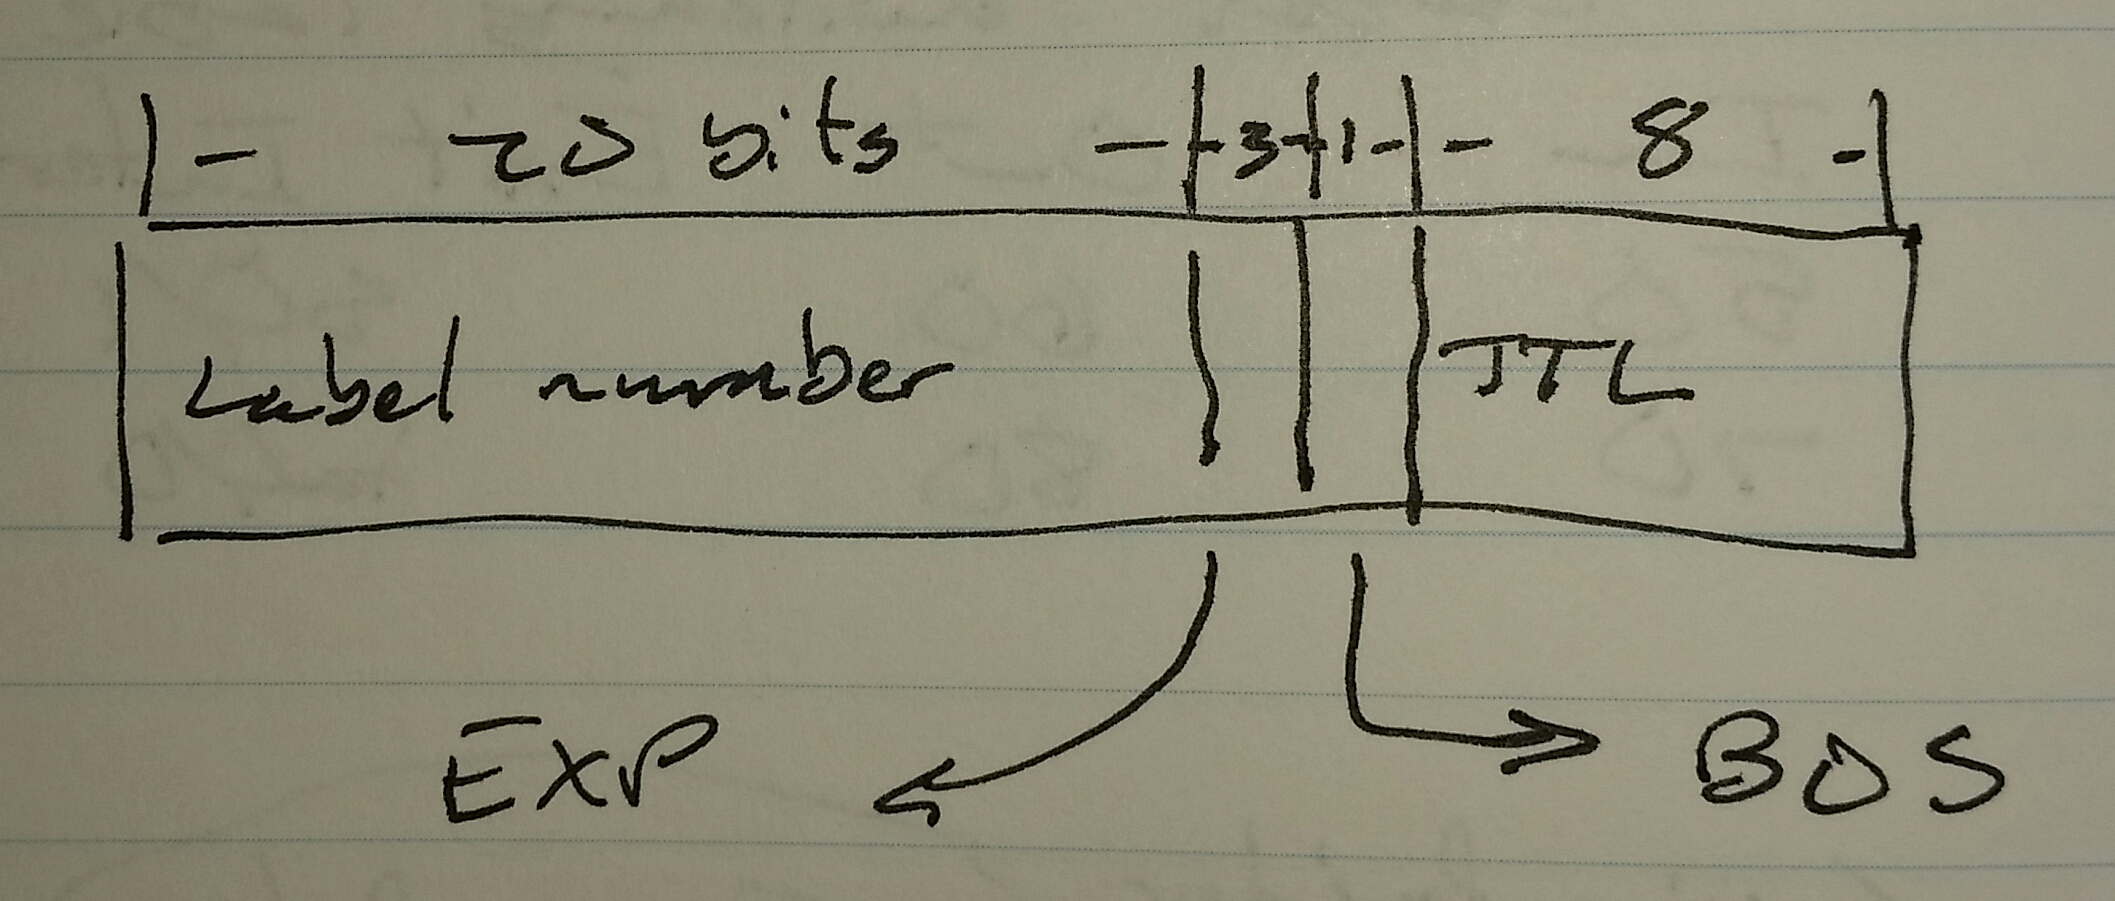 20 bits 3 1 8
Label number TTL
EXP BOS